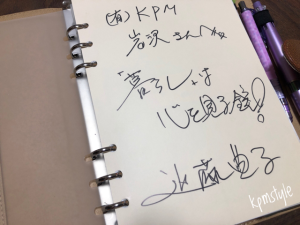 (有)KPM
岩沢さんへ
"暮らしは
心を見る鏡!
近藤典子
kpmstyle